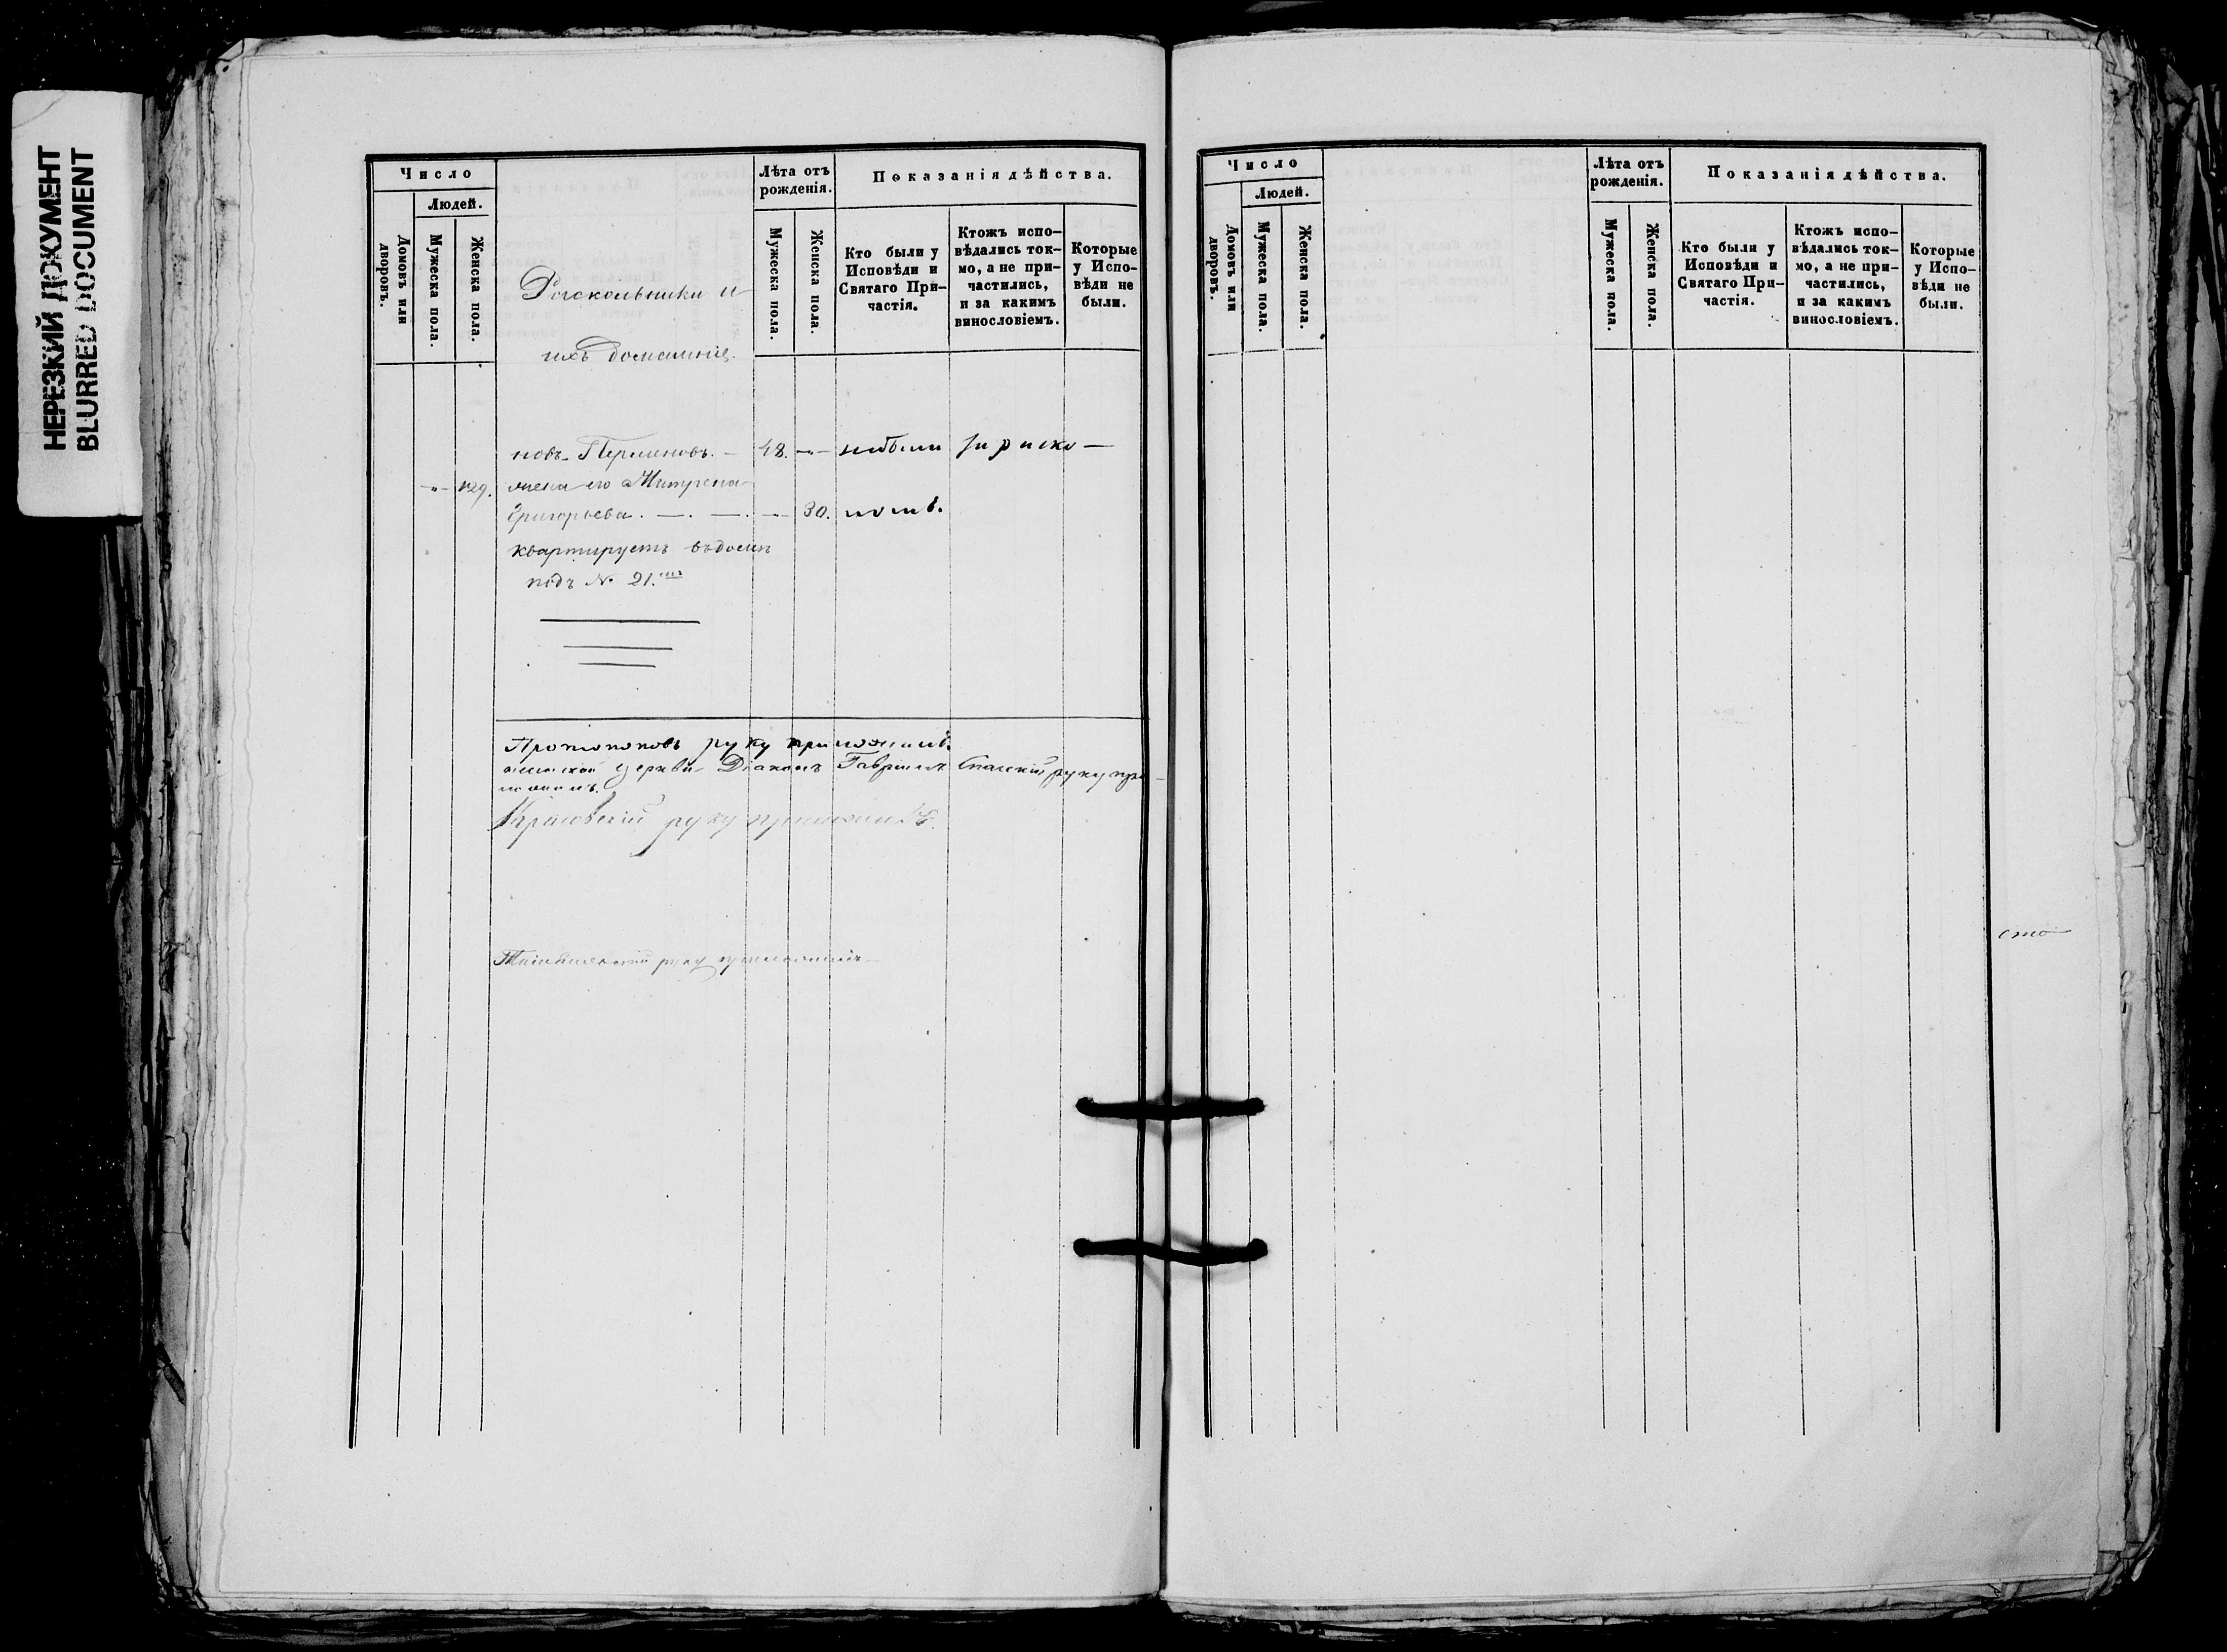 НЕРЕЗКИЙ ДОКУМЕНТ
BLURRED DOCUMENT
Число
Людей.
Домовъ или дворовъ.
Мужеска пола.
Женска пола.
Раскольники и
ихъ домашніе.
Лѣта отъ рожденія.
Мужеска пола.
Женска пола.
Показанія дѣйства.
Кто были у Исповѣди и Святаго Причастія.
Ктожъ исповѣдались токмо, а не причастились, и за какимъ винословіемъ.
Которые у Исповѣди не были.
новъ 48. — небыли за раско —
129. жена его
Григорьева. — . — . — 30. ломъ.
квартируетъ въ домѣ
подъ № 21.
Протопоповъ руку приложилъ.
церкви Діаконъ Гавріилъ Спасскій руку при-
ложилъ.
руку приложилъ.
руку приложилъ
Число
Людей.
Домовъ или дворовъ.
Мужеска пола.
Женска пола.
Лѣта отъ рожденія.
Мужеска пола.
Женска пола.
Показанія дѣйства.
Кто были у Исповѣди и Святаго Причастія.
Ктожъ исповѣдались токмо, а не причастились, и за какимъ винословіемъ.
Которые у Исповѣди не были.
сто